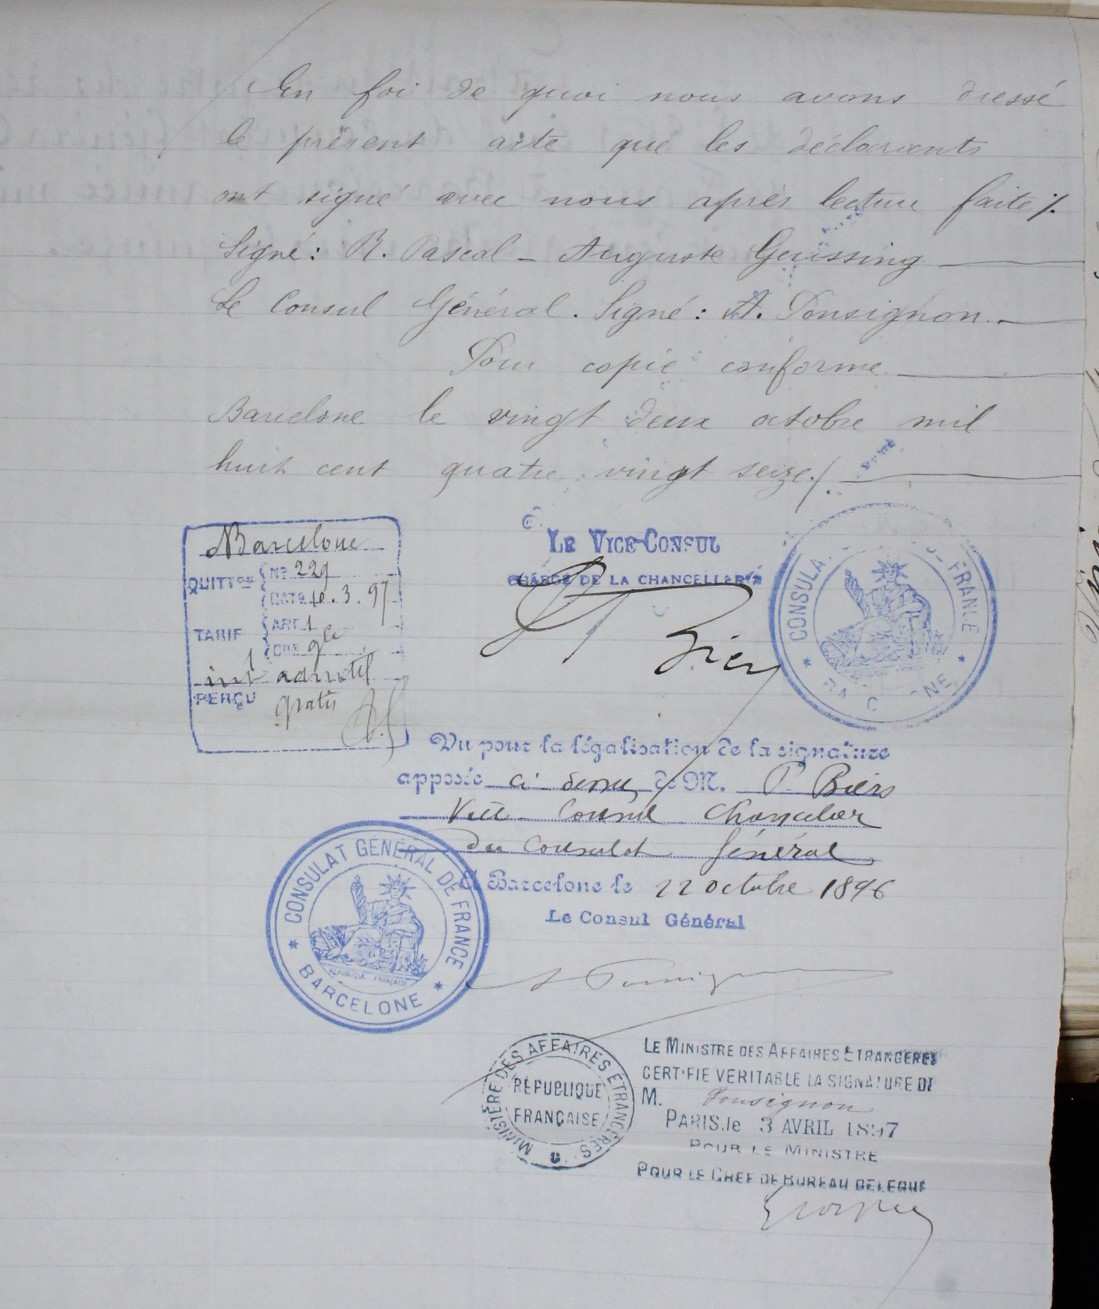 En foi de quoi nous avons dressé
le présent acte que les déclarants
ont signé avec nous après lecture faite ⁒.
Signé : R. Pascal - Auguste Geissing
Le Consul Général. Signé : A. Ponsignon.
Pour copie conforme
Barcelone le vingt deux octobre mil
huit cent quatre vingt seize ./.
Barcelone
QUITTce Nº 229
DATE 10.3.97
TARIF ART. 1
int adtif
PERÇU gratis
LE VICE-CONSUL
CHARGÉ DE LA CHANCELLERIE
P Biers
CONSULAT DE FRANCE
BARCELONE
Vu pour la légalisation de la signature
apposée ci dessus de M. P. Biers
Vice Consul Chancelier
du Consulat Général
à Barcelone le 22 octobre 1896
Le Consul Général
A Ponsignon
CONSULAT GÉNÉRAL DE FRANCE
BARCELONE
MINISTÈRE DES AFFAIRES ETRANGÈRES
RÉPUBLIQUE
FRANÇAISE
LE MINISTRE DES AFFAIRES ETRANGERES
CERTIFIE VERITABLE LA SIGNATURE DE
M. Ponsignon
PARIS, le 3 AVRIL 1897
POUR LE MINISTRE
POUR LE CHEF DE BUREAU DELEGUE